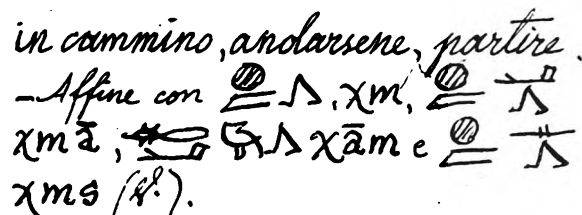 in cammino, andarsene, partire.
– Affine con , χm,
χmā, χām e
χms (V.).